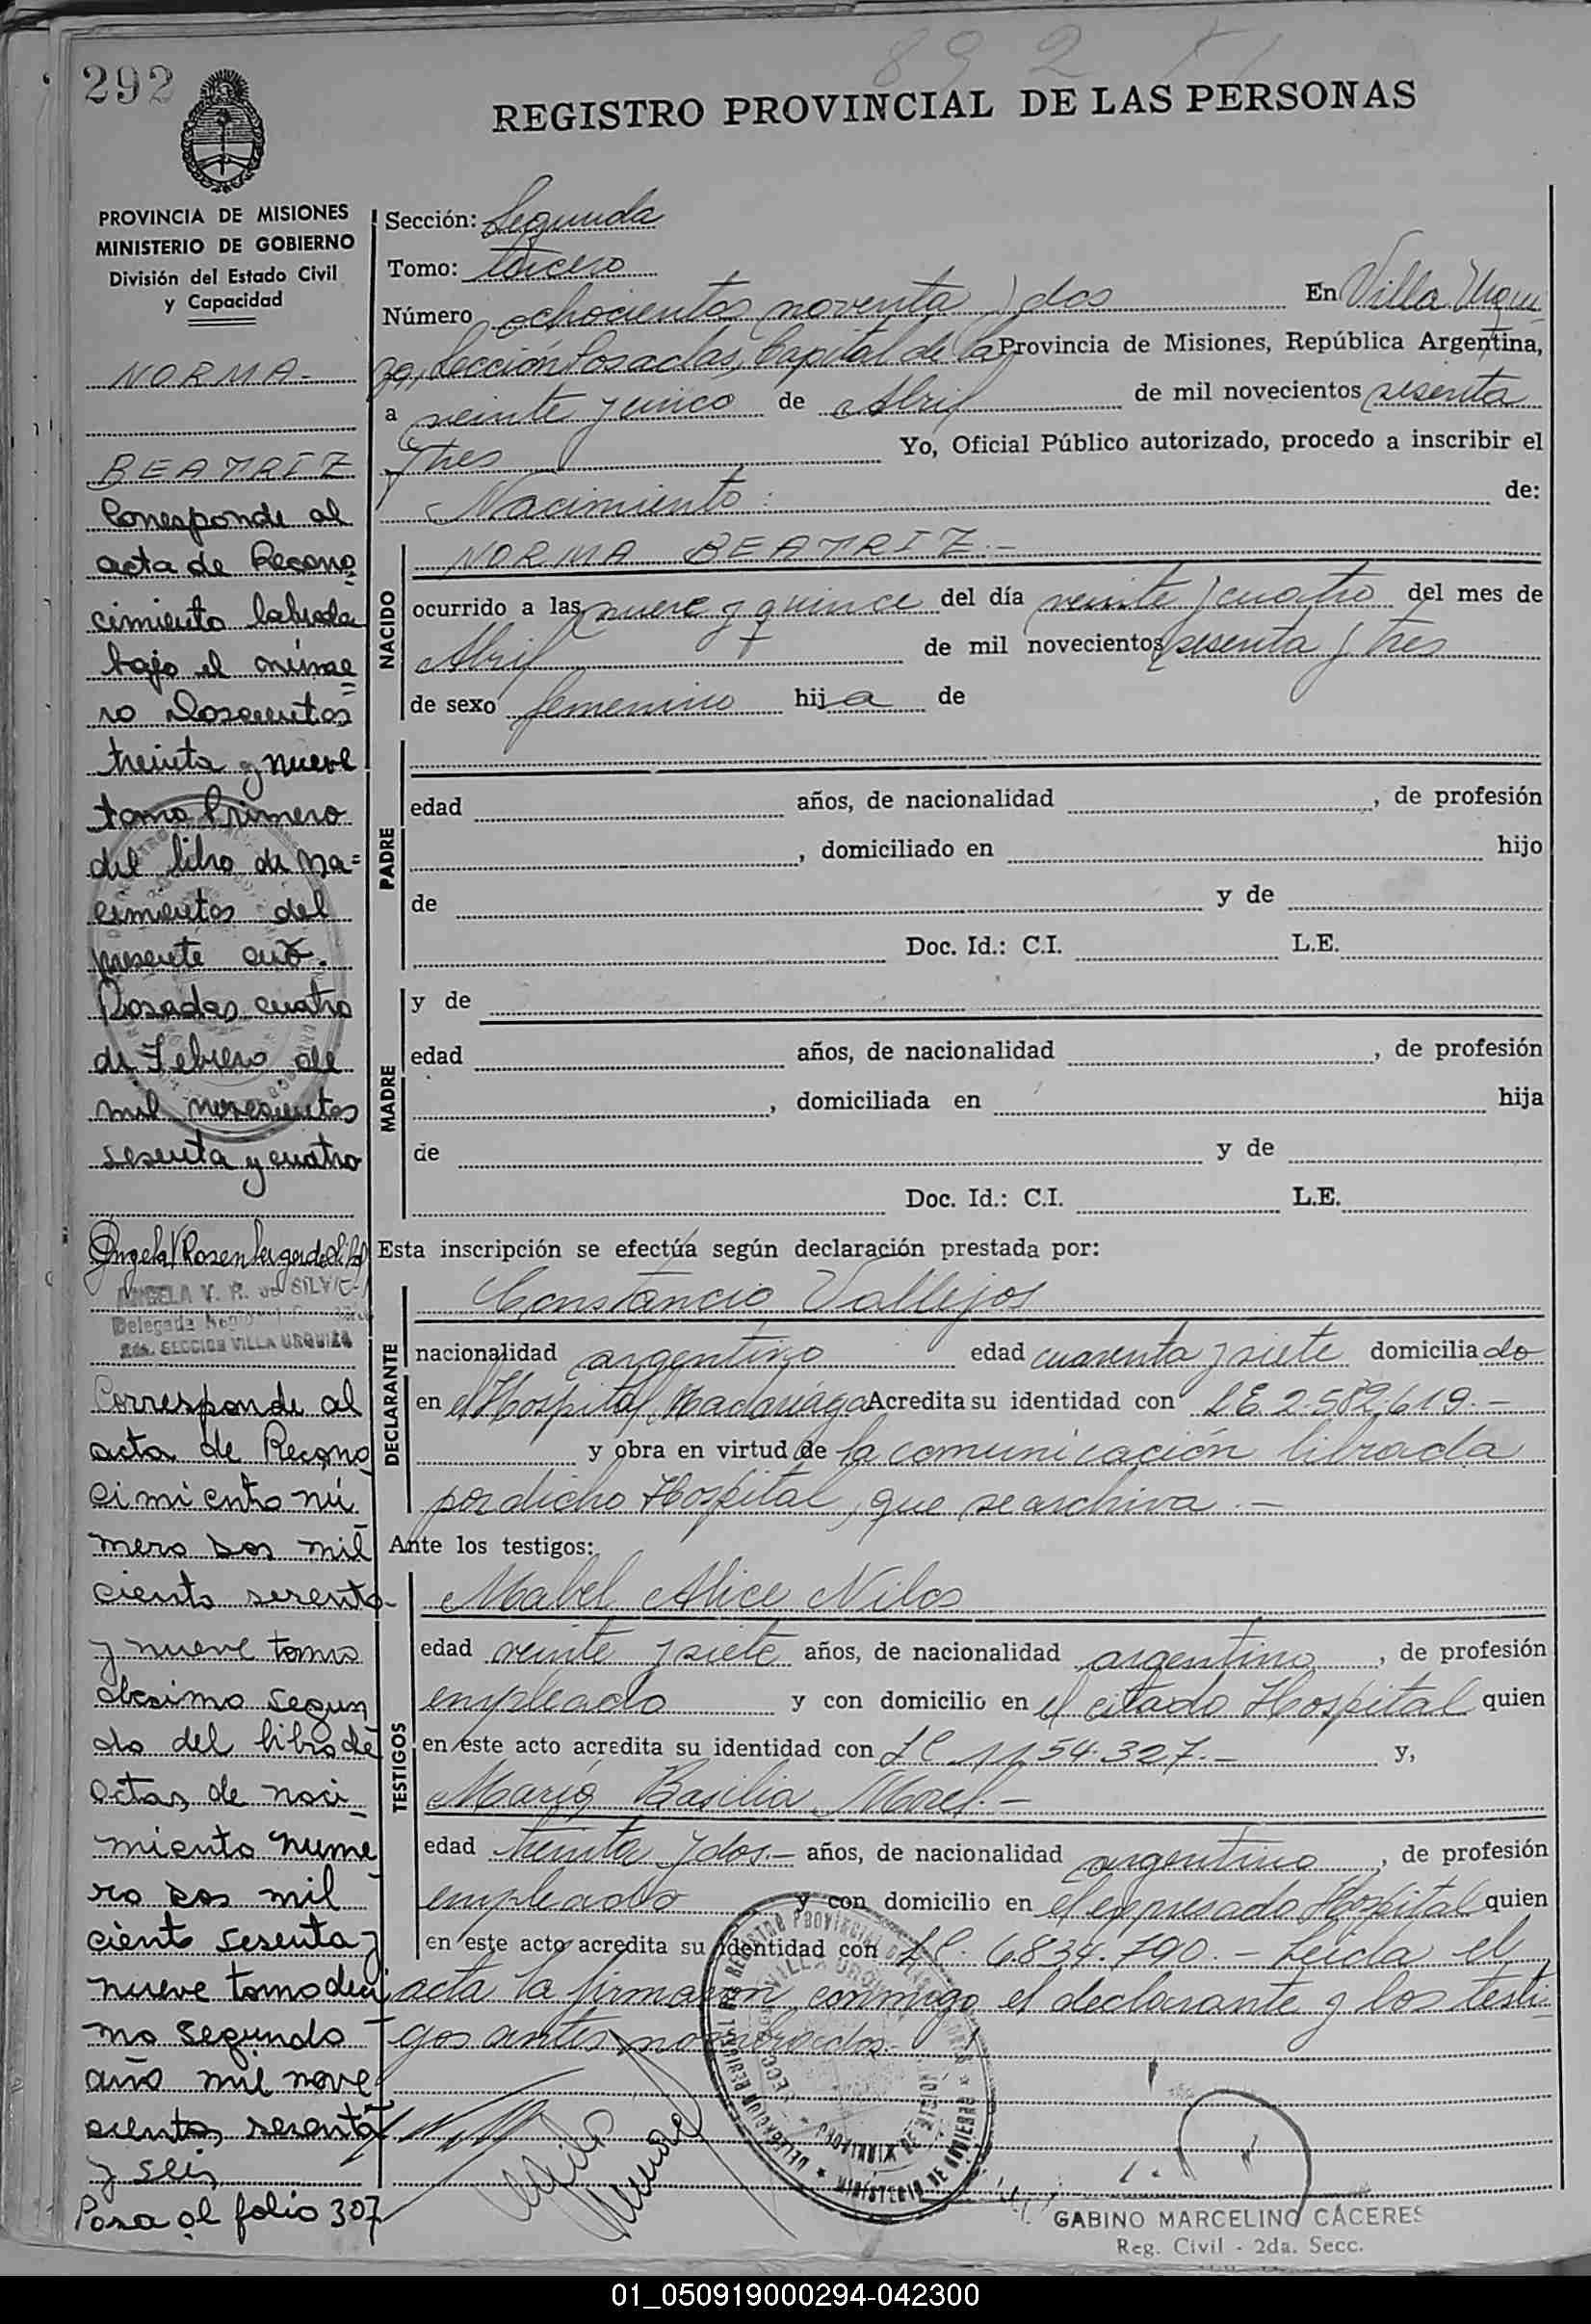 892
292
REGISTRO PROVINCIAL DE LAS PERSONAS
PROVINCIA DE MISIONES
MINISTERIO DE GOBIERNO
División del Estado Civil
y Capacidad
NORMA -
BEATRIZ
Corresponde al
acta de Recono
cimiento labrada
bajo el núme
ro Doscientos
treinta y nueve
tomo Primero
del libro de Na=
cimientos del
presente año.
Posadas cuatro
de Febrero de
mil novecientos
sesenta y cuatro
Angela V. Rosenberger de Silv
ANGELA V. R. de SILV
Delegada
2da. SECCION VILLA URQUIZA
Corresponde al
acta de Recono
cimiento nú
mero dos mil
ciento sesenta
y nueve tomo
décimo segun
do del libro de
actas de naci
miento nume
ro dos mil
ciento sesenta y
nueve tomo deci
mo segundo
año mil nove
cientos sesenta
y seis
Pasa al folio 307
Sección: Segunda
Tomo: tercero
Número ochocientos noventa y dos En Villa Urqui
za, Sección Posadas, Capital de la Provincia de Misiones, República Argentina,
a veinte y cinco de Abril de mil novecientos sesenta
y tres Yo, Oficial Público autorizado, procedo a inscribir el
Nacimiento: de:
NACIDO
NORMA BEATRIZ.-
ocurrido a las nueve y quince del día veinte y cuatro del mes de
Abril de mil novecientos sesenta y tres
de sexo femenino hija de
PADRE
edad años, de nacionalidad , de profesión
, domiciliado en hijo
de y de
Doc. Id.: C.I. L.E.
MADRE
y de
edad años, de nacionalidad , de profesión
, domiciliada en hija
de y de
Doc. Id.: C.I. L.E.
Esta inscripción se efectúa según declaración prestada por:
DECLARANTE
Constancio Vallejos
nacionalidad argentino edad cuarenta y siete domiciliado
en el Hospital Madariaga Acredita su identidad con LE 2.582.619.-
y obra en virtud de la comunicación librada
por dicho Hospital, que se archiva.-
Ante los testigos:
TESTIGOS
Mabel Alice Nilos
edad veinte y siete años, de nacionalidad argentino, de profesión
empleado y con domicilio en el citado Hospital quien
en este acto acredita su identidad con LC 1154.327.- y,
María Basilia Morel.-
edad treinta y dos.- años, de nacionalidad argentino, de profesión
empleado y con domicilio en el expresado Hospital quien
en este acto acredita su identidad con LC. 6.834.790.- Leida el
acta la firmaron conmigo el declarante y los testi
gos antes nombrados.-
GABINO MARCELINO CACERES
Reg. Civil - 2da. Secc.
01_050919000294-042300